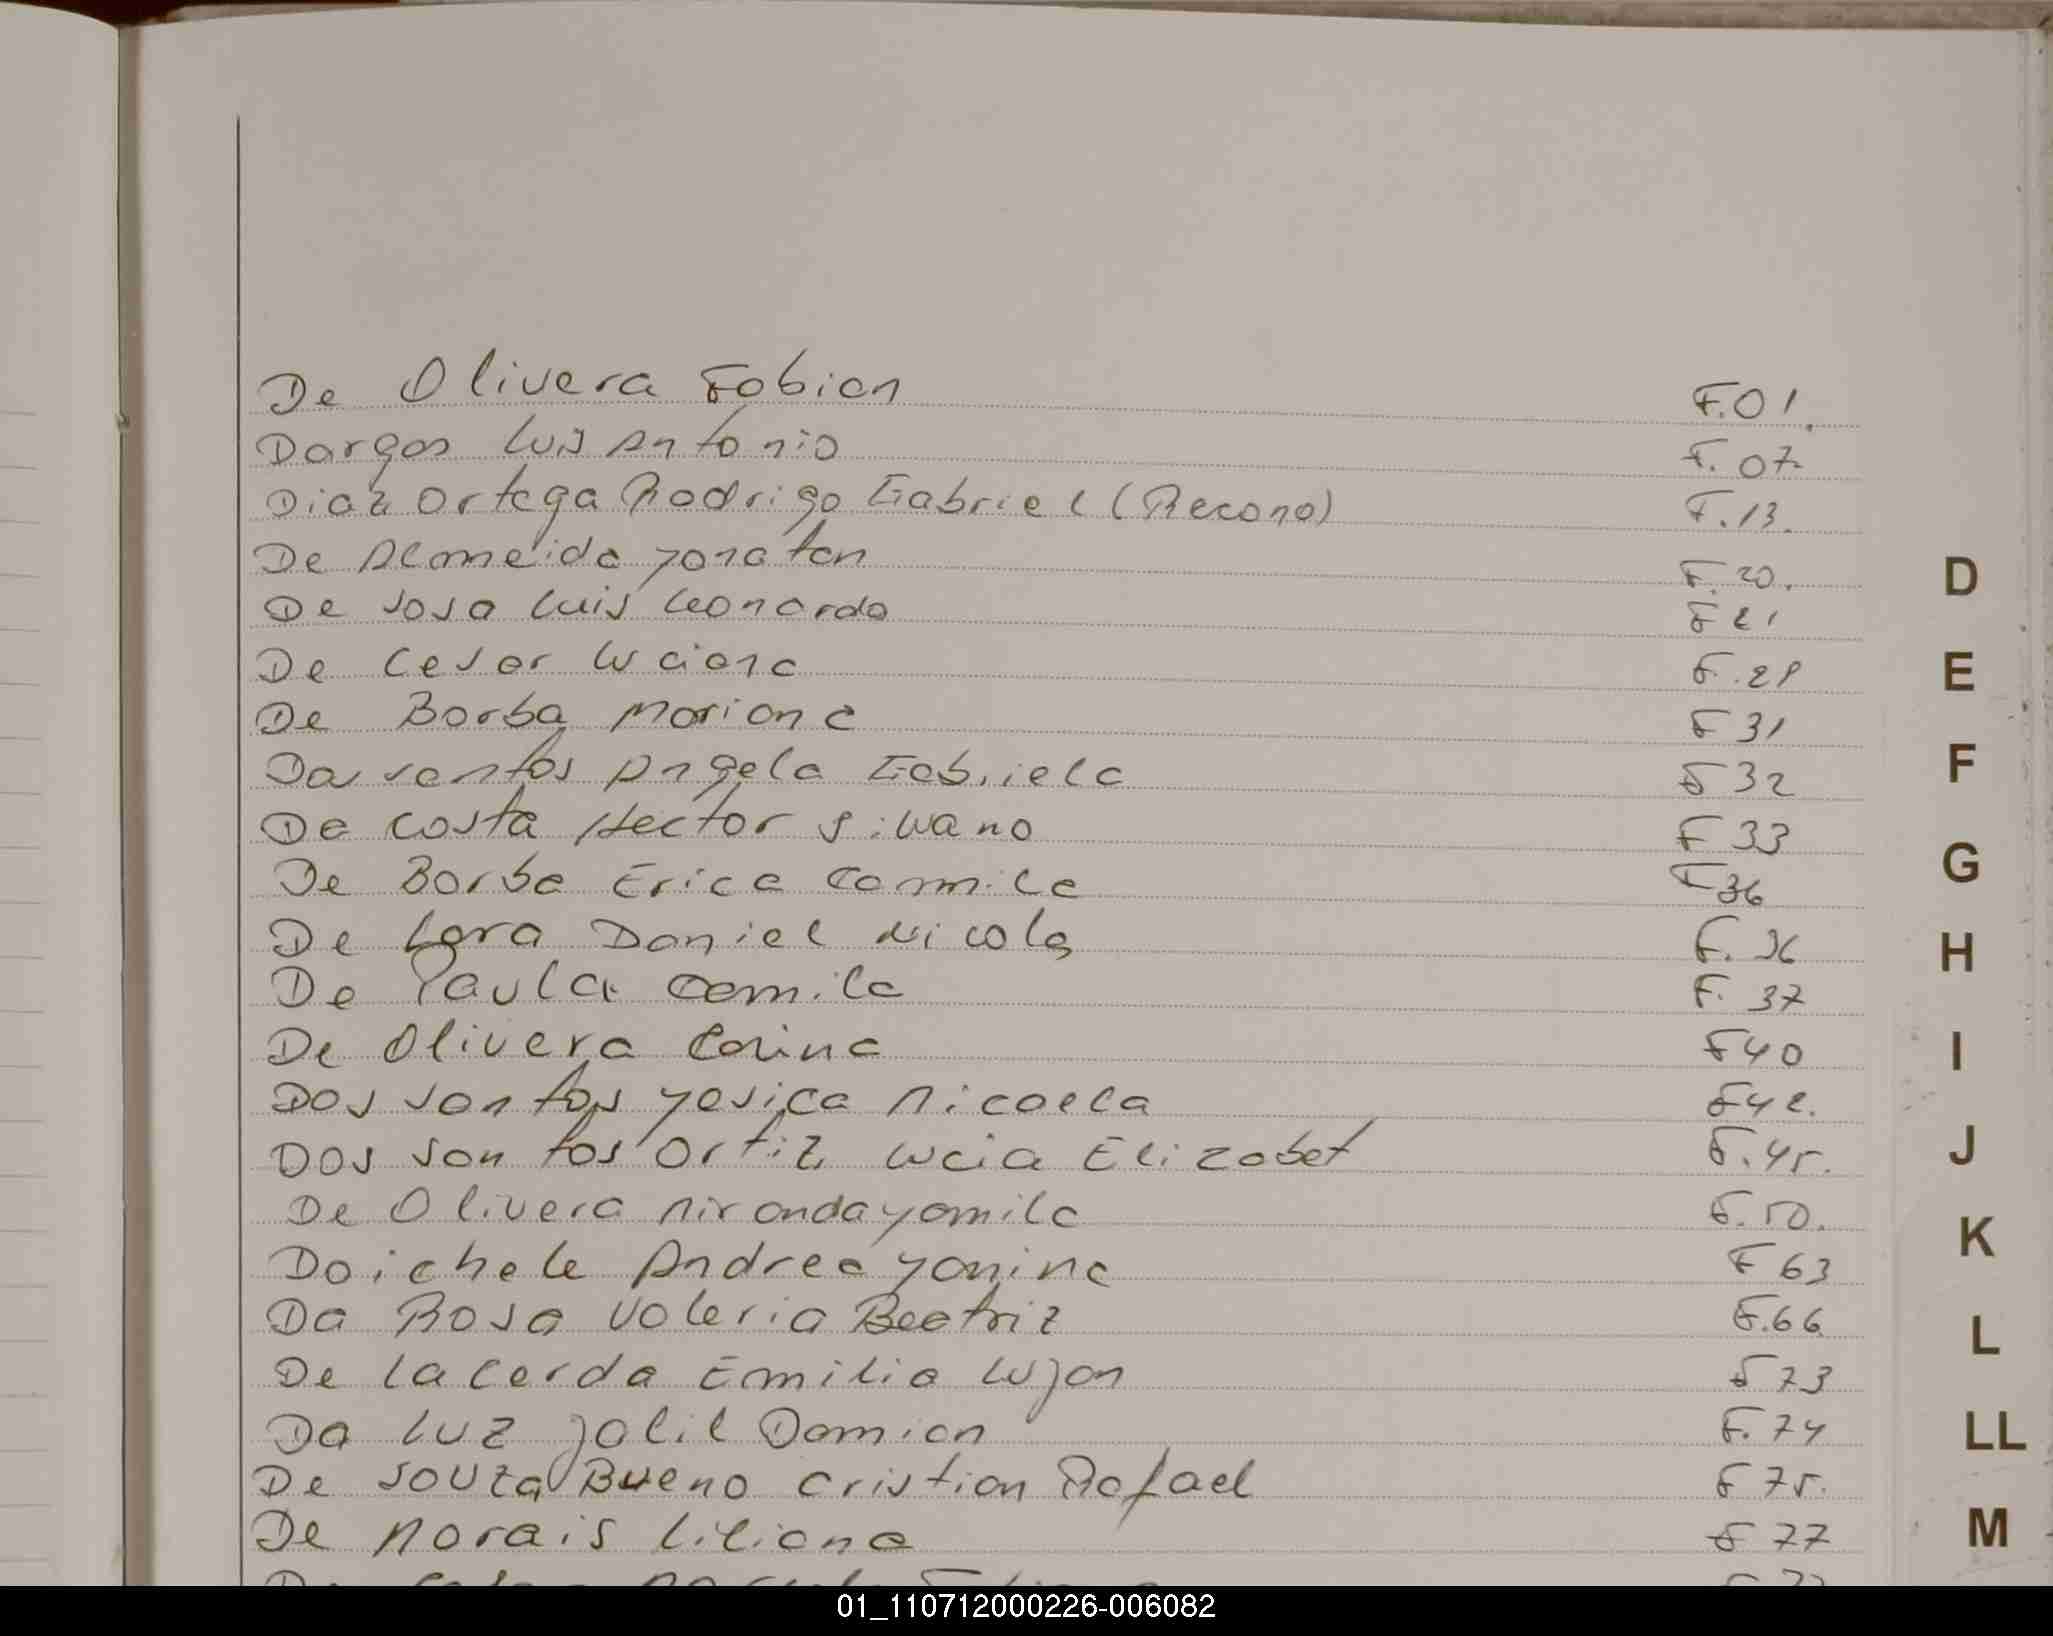 De Olivera Fabian F.01.
Dargas Luis Antonio F. 07.
Diaz Ortega Rodrigo Gabriel (Recono) F.13.
De Almeida Yonatan F. 20.
De Sosa Luis Leonardo F 21
De Cesar Luciana F. 28
De Borba Mariana F 31
Da Santos Angela Gabriela F 32
De Costa Hector Silvano F 33
De Borba Erica Camila F 36
De Lara Daniel Nicolas F. 36
De Paula Camila F. 37
De Olivera Carina F 40
Dos Santos Yesica Micaela F 42.
Dos Santos Ortiz Lucia Elizabet F. 45.
De Olivera Miranda Yamila F. 50.
Doichele Andrea Yanina F 63
Da Rosa Valeria Beatriz F.66
De la Cerda Emilia Lujan F 73
Da Luz Jalil Damian F. 74
De Souza Bueno Cristian Rafael F 75.
De Morais Liliana F 77
D
E
F
G
H
I
J
K
L
LL
M
01_110712000226-006082